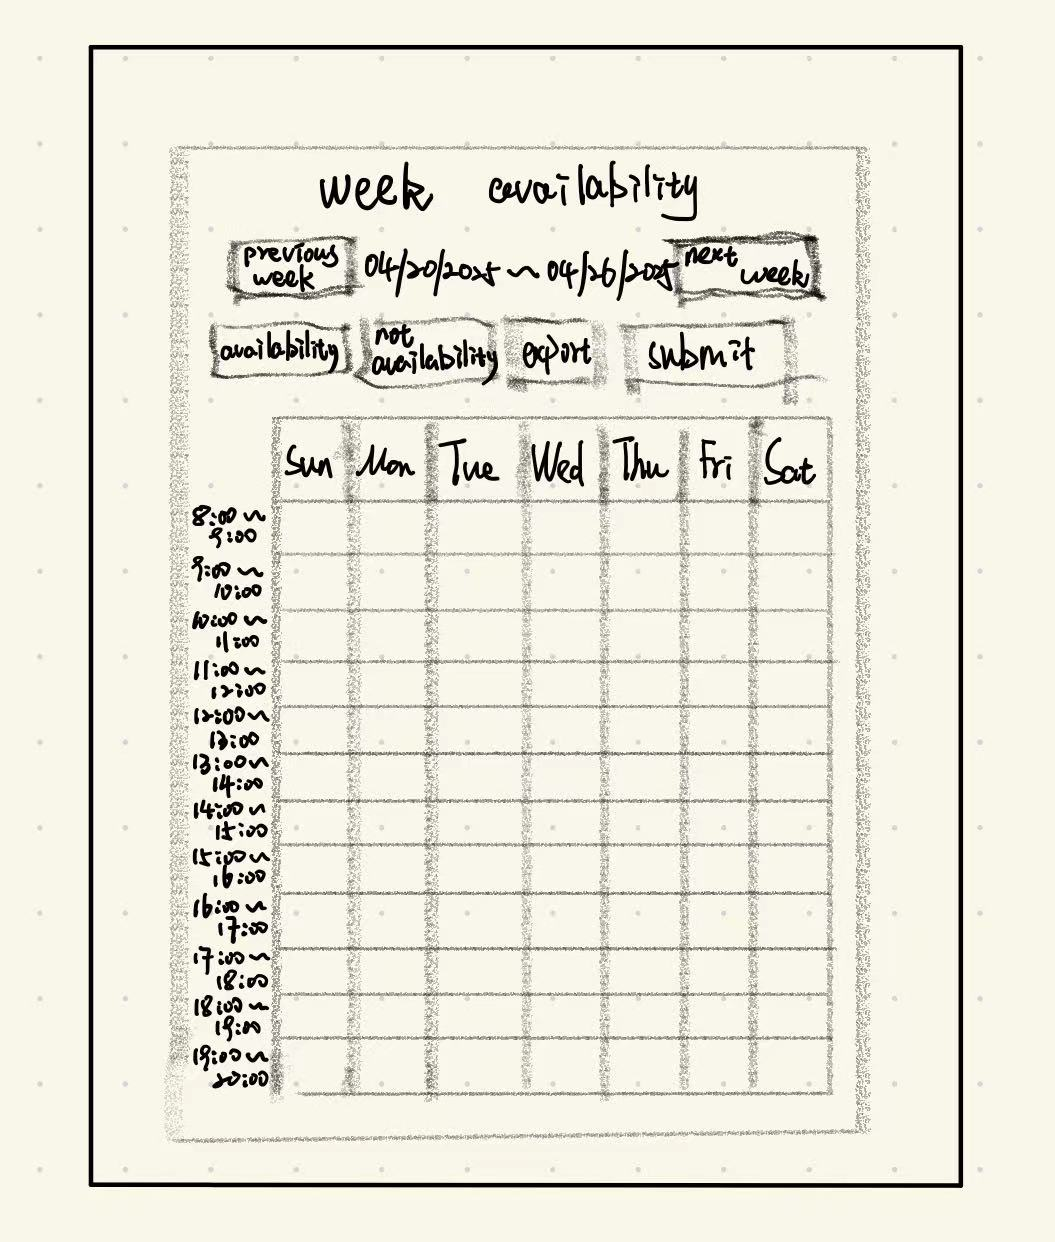 week availability
previous
week
04/20/2025 ~ 04/26/2025
next
week
availability
not
availability
export
submit
Sun Mon Tue Wed Thu Fri Sat
8:00 ~
9:00
9:00 ~
10:00
10:00 ~
11:00
11:00 ~
12:00
12:00 ~
13:00
13:00 ~
14:00
14:00 ~
15:00
15:00 ~
16:00
16:00 ~
17:00
17:00 ~
18:00
18:00 ~
19:00
19:00 ~
20:00